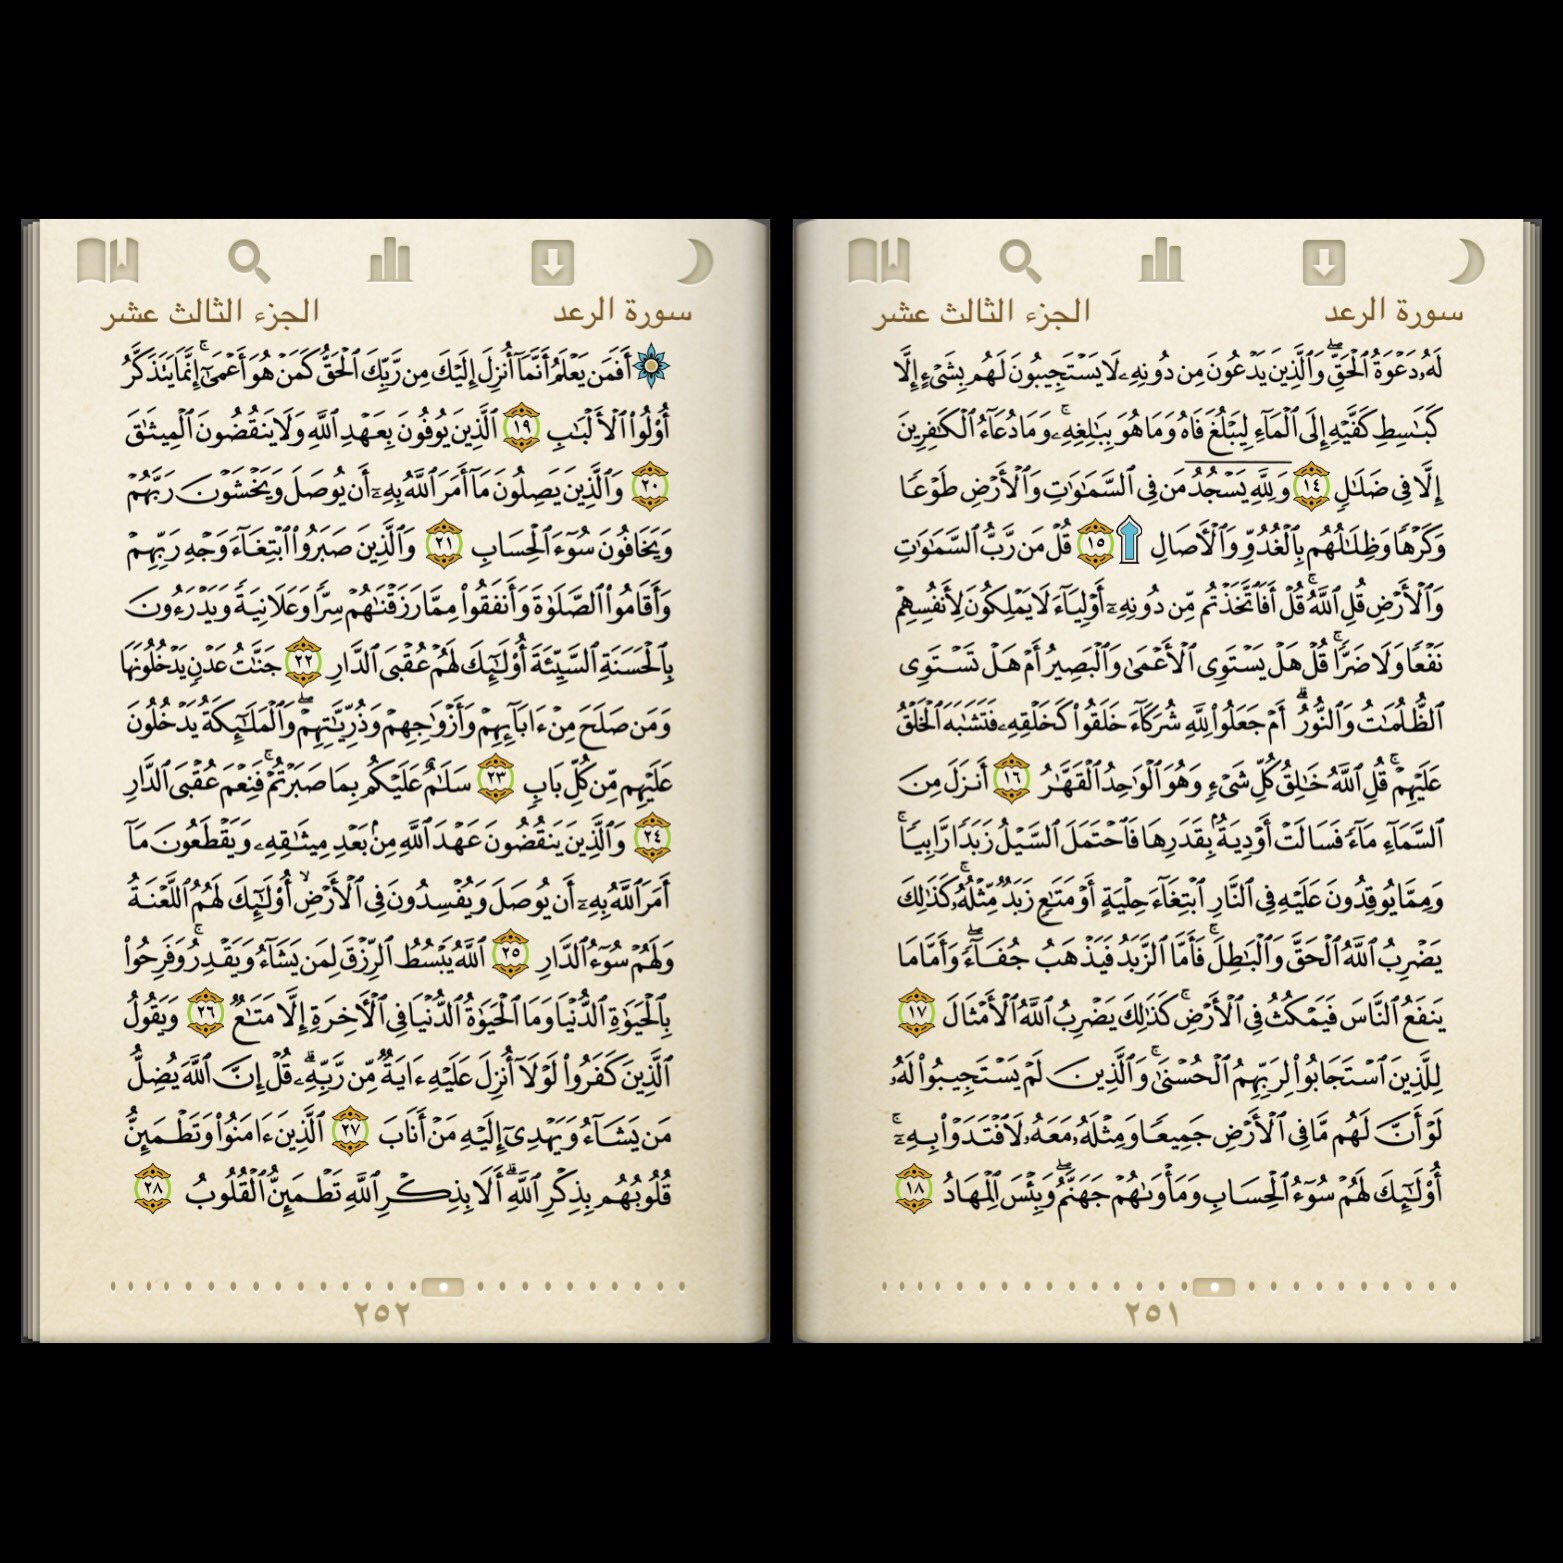 سورة الرعد
الجزء الثالث عشر
لَهُۥ دَعۡوَةُ ٱلۡحَقِّۖ وَٱلَّذِينَ يَدۡعُونَ مِن دُونِهِۦ لَا يَسۡتَجِيبُونَ لَهُم بِشَيۡءٍ إِلَّا
كَبَٰسِطِ كَفَّيۡهِ إِلَى ٱلۡمَآءِ لِيَبۡلُغَ فَاهُ وَمَا هُوَ بِبَٰلِغِهِۦۚ وَمَا دُعَآءُ ٱلۡكَٰفِرِينَ
إِلَّا فِي ضَلَٰلٖ ١٤ وَلِلَّهِ يَسۡجُدُۤ مَن فِي ٱلسَّمَٰوَٰتِ وَٱلۡأَرۡضِ طَوۡعٗا
وَكَرۡهٗا وَظِلَٰلُهُم بِٱلۡغُدُوِّ وَٱلۡأٓصَالِ ۩ ١٥ قُلۡ مَن رَّبُّ ٱلسَّمَٰوَٰتِ
وَٱلۡأَرۡضِ قُلِ ٱللَّهُۚ قُلۡ أَفَٱتَّخَذۡتُم مِّن دُونِهِۦٓ أَوۡلِيَآءَ لَا يَمۡلِكُونَ لِأَنفُسِهِمۡ
نَفۡعٗا وَلَا ضَرّٗاۚ قُلۡ هَلۡ يَسۡتَوِي ٱلۡأَعۡمَىٰ وَٱلۡبَصِيرُ أَمۡ هَلۡ تَسۡتَوِي
ٱلظُّلُمَٰتُ وَٱلنُّورُۗ أَمۡ جَعَلُواْ لِلَّهِ شُرَكَآءَ خَلَقُواْ كَخَلۡقِهِۦ فَتَشَٰبَهَ ٱلۡخَلۡقُ
عَلَيۡهِمۡۚ قُلِ ٱللَّهُ خَٰلِقُ كُلِّ شَيۡءٖ وَهُوَ ٱلۡوَٰحِدُ ٱلۡقَهَّٰرُ ١٦ أَنزَلَ مِنَ
ٱلسَّمَآءِ مَآءٗ فَسَالَتۡ أَوۡدِيَةُۢ بِقَدَرِهَا فَٱحۡتَمَلَ ٱلسَّيۡلُ زَبَدٗا رَّابِيٗاۚ
وَمِمَّا يُوقِدُونَ عَلَيۡهِ فِي ٱلنَّارِ ٱبۡتِغَآءَ حِلۡيَةٍ أَوۡ مَتَٰعٖ زَبَدٞ مِّثۡلُهُۥۚ كَذَٰلِكَ
يَضۡرِبُ ٱللَّهُ ٱلۡحَقَّ وَٱلۡبَٰطِلَۚ فَأَمَّا ٱلزَّبَدُ فَيَذۡهَبُ جُفَآءٗۖ وَأَمَّا مَا
يَنفَعُ ٱلنَّاسَ فَيَمۡكُثُ فِي ٱلۡأَرۡضِۚ كَذَٰلِكَ يَضۡرِبُ ٱللَّهُ ٱلۡأَمۡثَالَ ١٧
لِلَّذِينَ ٱسۡتَجَابُواْ لِرَبِّهِمُ ٱلۡحُسۡنَىٰۚ وَٱلَّذِينَ لَمۡ يَسۡتَجِيبُواْ لَهُۥ
لَوۡ أَنَّ لَهُم مَّا فِي ٱلۡأَرۡضِ جَمِيعٗا وَمِثۡلَهُۥ مَعَهُۥ لَٱفۡتَدَوۡاْ بِهِۦٓۚ
أُوْلَٰٓئِكَ لَهُمۡ سُوٓءُ ٱلۡحِسَابِ وَمَأۡوَىٰهُمۡ جَهَنَّمُۖ وَبِئۡسَ ٱلۡمِهَادُ ١٨
٢٥١
سورة الرعد
الجزء الثالث عشر
۞ أَفَمَن يَعۡلَمُ أَنَّمَآ أُنزِلَ إِلَيۡكَ مِن رَّبِّكَ ٱلۡحَقُّ كَمَنۡ هُوَ أَعۡمَىٰٓۚ إِنَّمَا يَتَذَكَّرُ
أُوْلُواْ ٱلۡأَلۡبَٰبِ ١٩ ٱلَّذِينَ يُوفُونَ بِعَهۡدِ ٱللَّهِ وَلَا يَنقُضُونَ ٱلۡمِيثَٰقَ
٢٠ وَٱلَّذِينَ يَصِلُونَ مَآ أَمَرَ ٱللَّهُ بِهِۦٓ أَن يُوصَلَ وَيَخۡشَوۡنَ رَبَّهُمۡ
وَيَخَافُونَ سُوٓءَ ٱلۡحِسَابِ ٢١ وَٱلَّذِينَ صَبَرُواْ ٱبۡتِغَآءَ وَجۡهِ رَبِّهِمۡ
وَأَقَامُواْ ٱلصَّلَوٰةَ وَأَنفَقُواْ مِمَّا رَزَقۡنَٰهُمۡ سِرّٗا وَعَلَانِيَةٗ وَيَدۡرَءُونَ
بِٱلۡحَسَنَةِ ٱلسَّيِّئَةَ أُوْلَٰٓئِكَ لَهُمۡ عُقۡبَى ٱلدَّارِ ٢٢ جَنَّٰتُ عَدۡنٖ يَدۡخُلُونَهَا
وَمَن صَلَحَ مِنۡ ءَابَآئِهِمۡ وَأَزۡوَٰجِهِمۡ وَذُرِّيَّٰتِهِمۡۖ وَٱلۡمَلَٰٓئِكَةُ يَدۡخُلُونَ
عَلَيۡهِم مِّن كُلِّ بَابٖ ٢٣ سَلَٰمٌ عَلَيۡكُم بِمَا صَبَرۡتُمۡۚ فَنِعۡمَ عُقۡبَى ٱلدَّارِ
٢٤ وَٱلَّذِينَ يَنقُضُونَ عَهۡدَ ٱللَّهِ مِنۢ بَعۡدِ مِيثَٰقِهِۦ وَيَقۡطَعُونَ مَآ
أَمَرَ ٱللَّهُ بِهِۦٓ أَن يُوصَلَ وَيُفۡسِدُونَ فِي ٱلۡأَرۡضِۙ أُوْلَٰٓئِكَ لَهُمُ ٱللَّعۡنَةُ
وَلَهُمۡ سُوٓءُ ٱلدَّارِ ٢٥ ٱللَّهُ يَبۡسُطُ ٱلرِّزۡقَ لِمَن يَشَآءُ وَيَقۡدِرُۚ وَفَرِحُواْ
بِٱلۡحَيَوٰةِ ٱلدُّنۡيَا وَمَا ٱلۡحَيَوٰةُ ٱلدُّنۡيَا فِي ٱلۡأٓخِرَةِ إِلَّا مَتَٰعٞ ٢٦ وَيَقُولُ
ٱلَّذِينَ كَفَرُواْ لَوۡلَآ أُنزِلَ عَلَيۡهِ ءَايَةٞ مِّن رَّبِّهِۦۗ قُلۡ إِنَّ ٱللَّهَ يُضِلُّ
مَن يَشَآءُ وَيَهۡدِيٓ إِلَيۡهِ مَنۡ أَنَابَ ٢٧ ٱلَّذِينَ ءَامَنُواْ وَتَطۡمَئِنُّ
قُلُوبُهُم بِذِكۡرِ ٱللَّهِۗ أَلَا بِذِكۡرِ ٱللَّهِ تَطۡمَئِنُّ ٱلۡقُلُوبُ ٢٨
٢٥٢